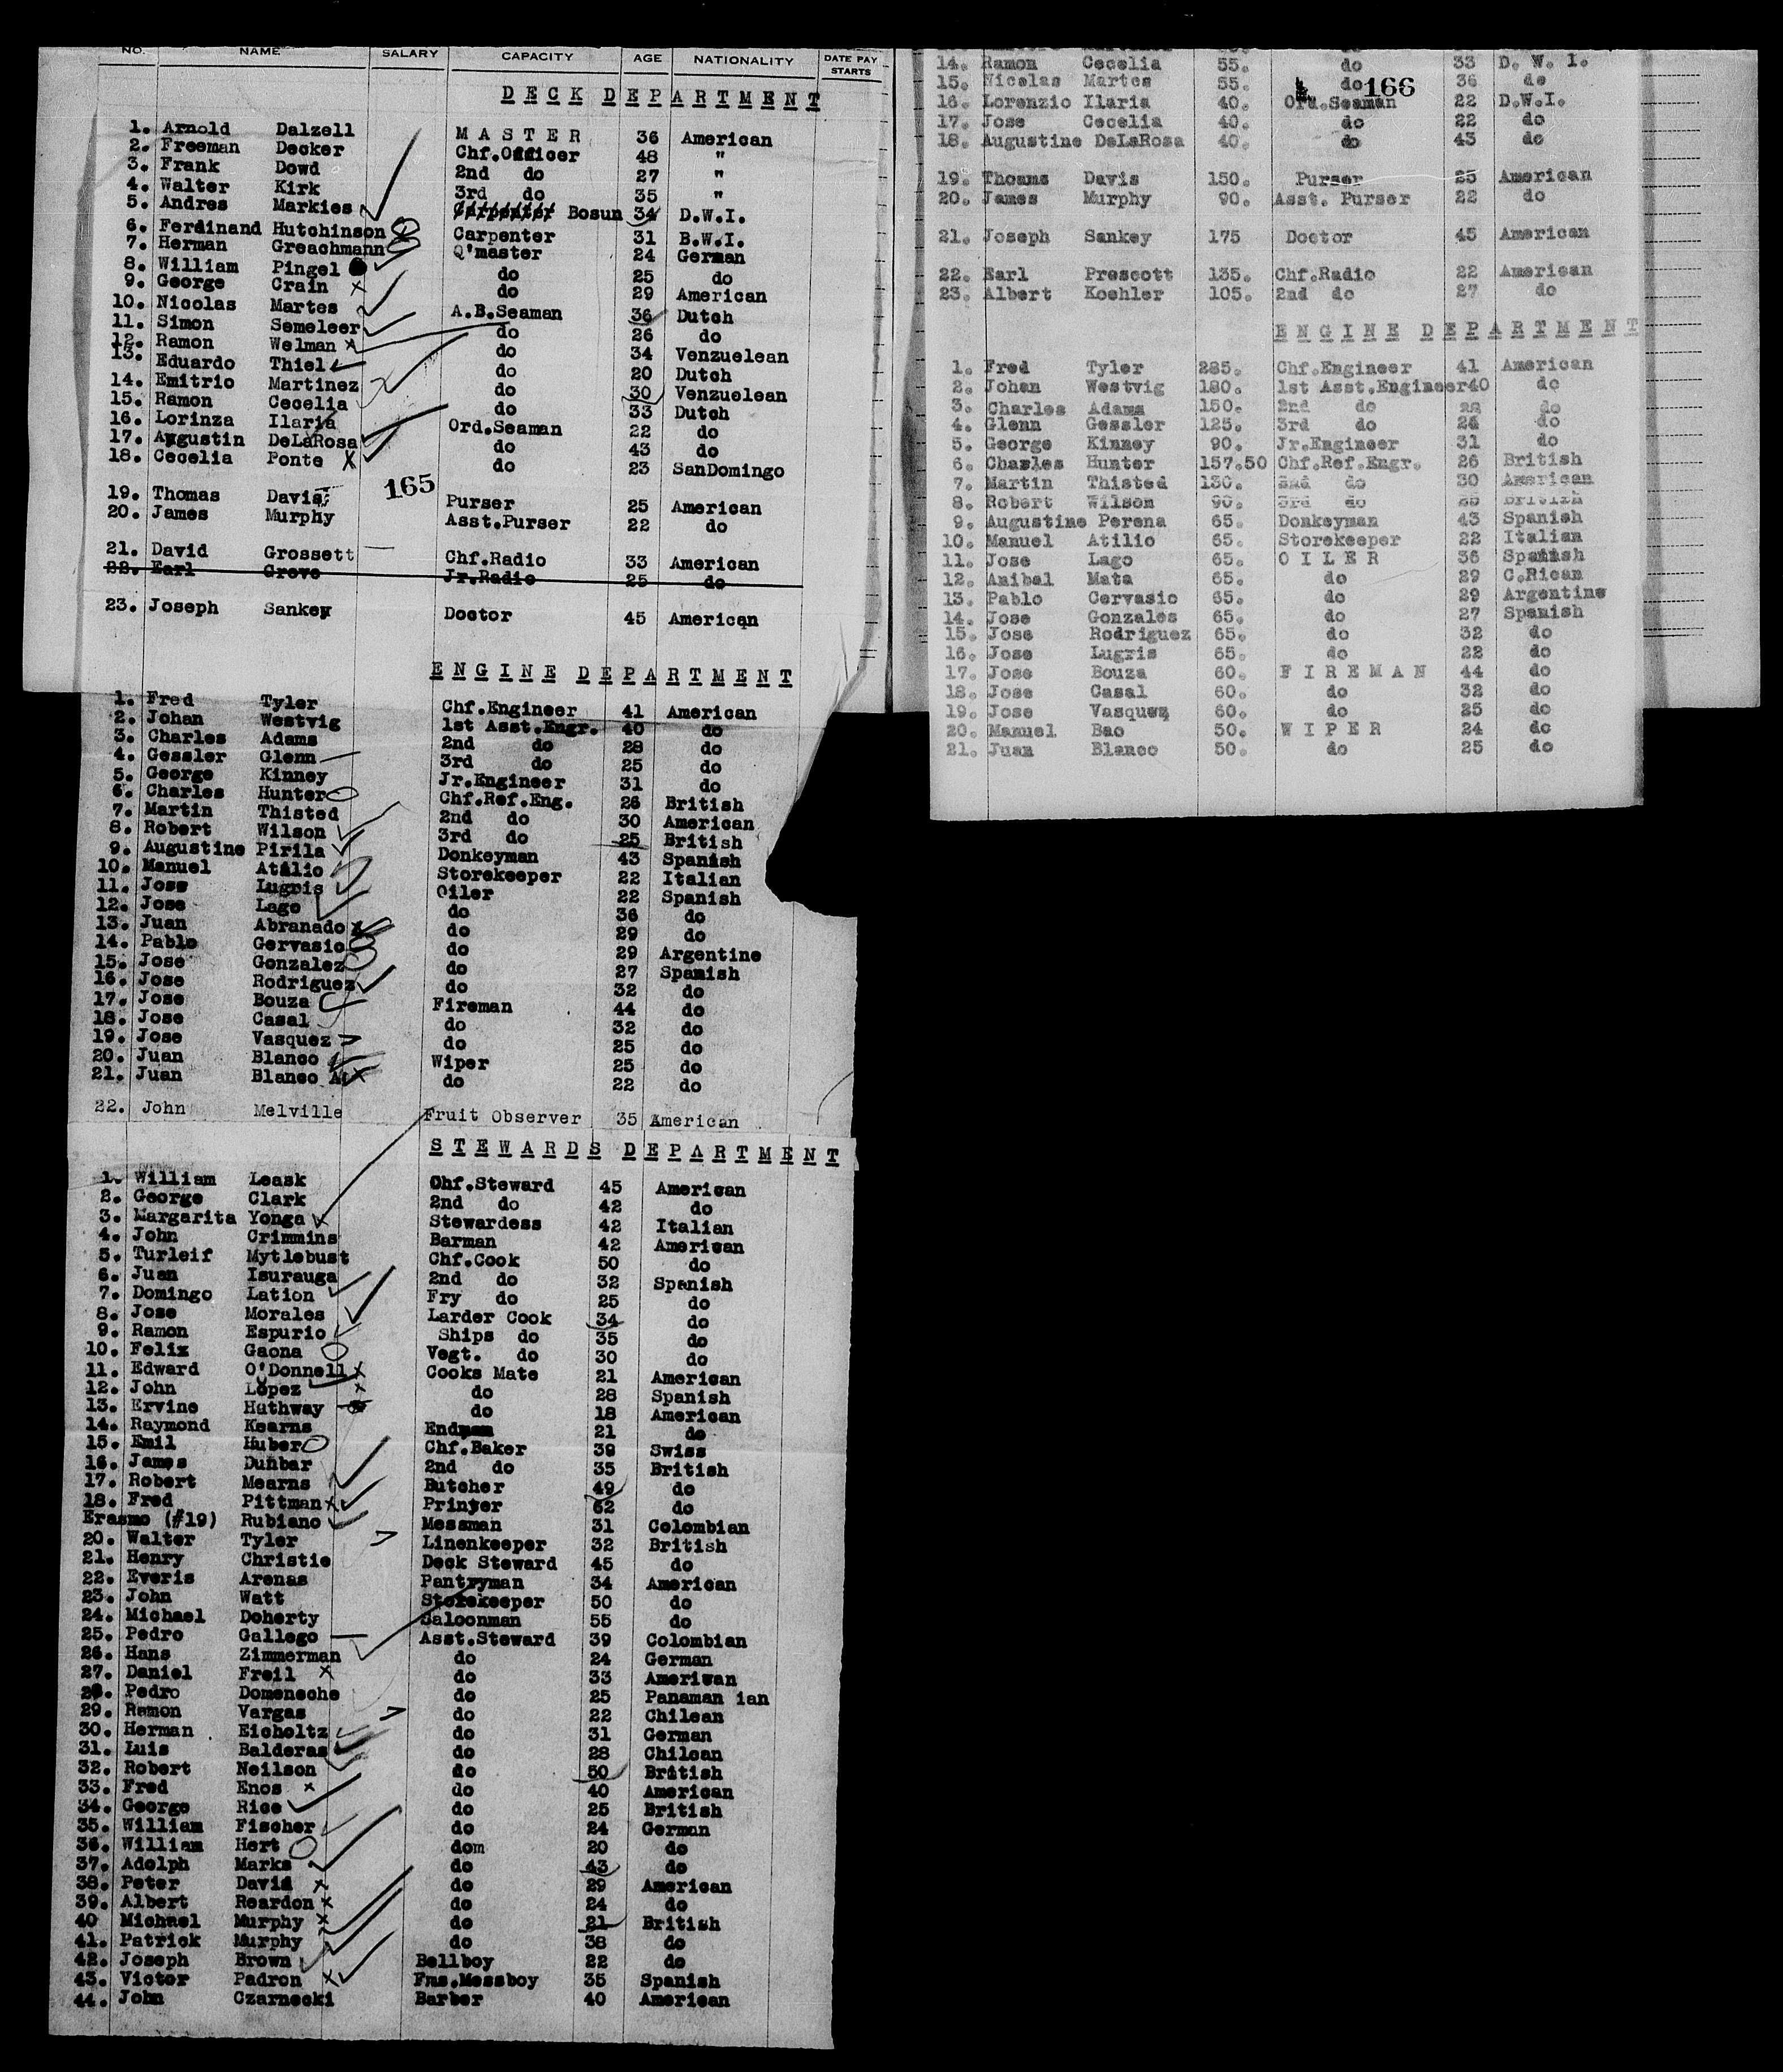 NO. NAME SALARY CAPACITY AGE NATIONALITY DATE PAY STARTS
DECK DEPARTMENT
1. Arnold Dalzell MASTER 36 American
2. Freeman Decker Chf.Officer 48 "
3. Frank Dowd 2nd do 27 "
4. Walter Kirk 3rd do 35 "
5. Andres Markies Carpenter Bosun 34 D.W.I.
6. Ferdinand Hutchinson Carpenter 31 B.W.I.
7. Herman Greachmann Q'master 24 German
8. William Pingel do 25 do
9. George Crain do 29 American
10. Nicolas Martes A.B.Seaman 36 Dutch
11. Simon Semeleer do 26 do
12. Ramon Welman do 34 Venzuelean
13. Eduardo Thiel do 20 Dutch
14. Emitrio Martinez do 30 Venzuelean
15. Ramon Cecelia do 33 Dutch
16. Lorinza Ilaria Ord.Seaman 22 do
17. Augustin DeLaRosa do 43 do
18. Cecelia Ponte do 23 SanDomingo
165
19. Thomas Davis Purser 25 American
20. James Murphy Asst.Purser 22 do
21. David Grossett Chf.Radio 33 American
22. Earl Grove Jr.Radio 25 do
23. Joseph Sankey Doctor 45 American
ENGINE DEPARTMENT
1. Fred Tyler Chf.Engineer 41 American
2. Johan Westvig 1st Asst.Engr. 40 do
3. Charles Adams 2nd do 28 do
4. Gessler Glenn 3rd do 25 do
5. George Kinney Jr.Engineer 31 do
6. Charles Hunter Chf.Ref.Eng. 26 British
7. Martin Thisted 2nd do 30 American
8. Robert Wilson 3rd do 25 British
9. Augustine Pirila Donkeyman 43 Spanish
10. Manuel Atilio Storekeeper 22 Italian
11. Jose Lugris Oiler 22 Spanish
12. Jose Lago do 36 do
13. Juan Abranado do 29 do
14. Pablo Gervasio do 29 Argentine
15. Jose Gonzalez do 27 Spanish
16. Jose Rodriguez do 32 do
17. Jose Bouza Fireman 44 do
18. Jose Casal do 32 do
19. Jose Vasquez do 25 do
20. Juan Blanco Wiper 25 do
21. Juan Blanco do 22 do
22. John Melville Fruit Observer 35 American
STEWARDS DEPARTMENT
1. William Leask Chf.Steward 45 American
2. George Clark 2nd do 42 do
3. Margarita Yonga Stewardess 42 Italian
4. John Crimmins Barman 42 American
5. Turleif Mytlebust Chf.Cook 50 do
6. Juan Isurauga 2nd do 32 Spanish
7. Domingo Lation Fry do 25 do
8. Jose Morales Larder Cook 34 do
9. Ramon Espurio Ships do 35 do
10. Felix Gaona Vegt. do 30 do
11. Edward O'Donnell Cooks Mate 21 American
12. John Lopez do 28 Spanish
13. Ervine Hathway do 18 American
14. Raymond Kearns Endman 21 do
15. Emil Huber Chf.Baker 39 Swiss
16. James Dunbar 2nd do 35 British
17. Robert Mearns Butcher 49 do
18. Fred Pittman Printer 62 do
Erasmo (#19) Rubiano Messman 31 Colombian
20. Walter Tyler Linenkeeper 32 British
21. Henry Christie Deck Steward 45 do
22. Everis Arenas Pantryman 34 American
23. John Watt Storekeeper 50 do
24. Michael Doherty Saloonman 55 do
25. Pedro Gallego Asst.Steward 39 Colombian
26. Hans Zimmerman do 24 German
27. Daniel Freil do 33 American
28. Pedro Domeneche do 25 Panaman ian
29. Ramon Vargas do 22 Chilean
30. Herman Eicholtz do 31 German
31. Luis Balderas do 28 Chilean
32. Robert Neilson do 50 British
33. Fred Enos do 40 American
34. George Rice do 25 British
35. William Fischer do 24 German
36. William Hert dom 20 do
37. Adolph Marks do 43 do
38. Peter David do 29 American
39. Albert Reardon do 24 do
40 Michael Murphy do 21 British
41. Patrick Murphy do 38 do
42. Joseph Brown Bellboy 22 do
43. Victor Padron Fns.Messboy 35 Spanish
44. John Czarnecki Barber 40 American
14. Ramon Cecelia 55. do 33 D. W. I.
15. Nicolas Martes 55. do 36 do
166
16. Lorenzio Ilaria 40. Ord.Seaman 22 D.W.I.
17. Jose Cecelia 40. do 22 do
18. Augustine DeLaRosa 40. do 43 do
19. Thoams Davis 150. Purser 25 American
20. James Murphy 90. Asst. Purser 22 do
21. Joseph Sankey 175 Doctor 45 American
22. Earl Prescott 135. Chf.Radio 22 American
23. Albert Koehler 105. 2nd do 27 do
ENGINE DEPARTMENT
1. Fred Tyler 285. Chf.Engineer 41 American
2. Johan Westvig 180. 1st Asst.Engineer40 do
3. Charles Adams 150. 2nd do 28 do
4. Glenn Gessler 125. 3rd do do
5. George Kinney 90. Jr.Engineer 31 do
6. Charles Hunter 157.50 Chf.Ref.Engr. 26 British
7. Martin Thisted 130. 2nd do 30 American
8. Robert Wilson 90. 3rd do 25 British
9. Augustine Perena 65. Donkeyman 43 Spanish
10. Manuel Atilio 65. Storekeeper 22 Italian
11. Jose Lago 65. OILER 36 Spanish
12. Anibal Mata 65. do 29 C.Rican
13. Pablo Gervasio 65. do 29 Argentine
14. Jose Gonzales 65. do 27 Spanish
15. Jose Rodriguez 65. do 32 do
16. Jose Lugris 65. do 22 do
17. Jose Bouza 60. FIREMAN 44 do
18. Jose Casal 60. do 32 do
19. Jose Vasquez 60. do 25 do
20. Manuel Bao 50. WIPER 24 do
21. Juan Blanco 50. do 25 do